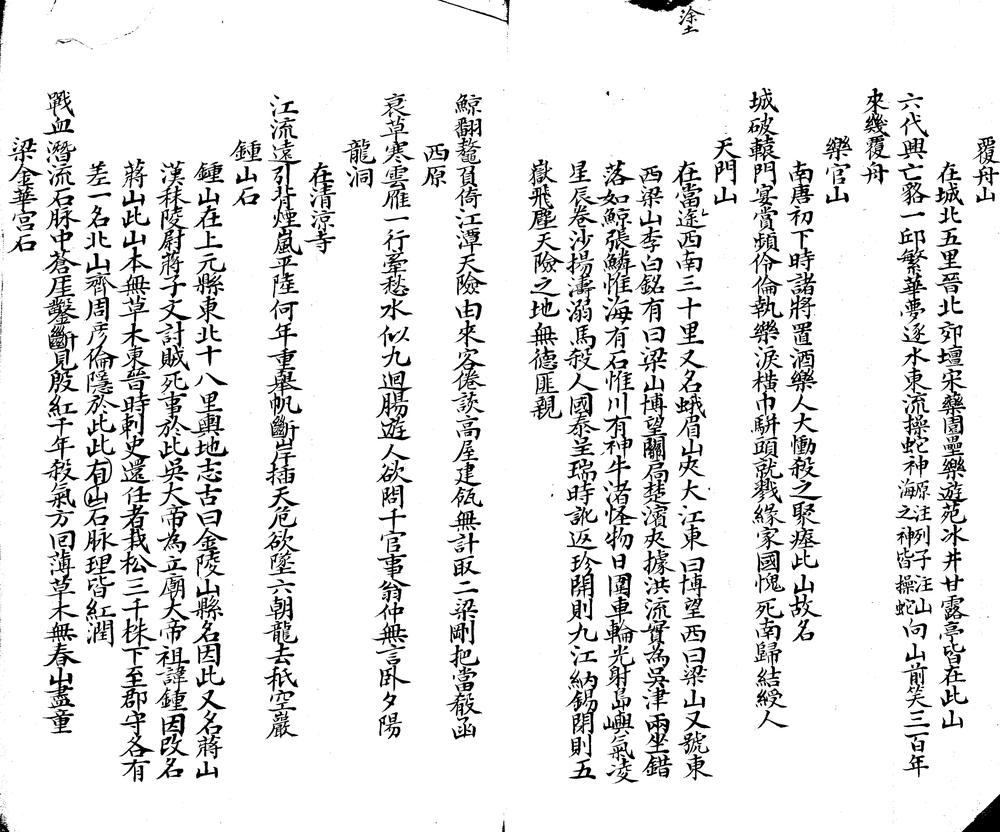 塗
覆舟山
在城北五里晉北郊壇宋藥園壘樂遊苑冰井甘露亭皆在此山
六代興亡貉一邱繁華夢逐水東流操蛇神原注列子注山海之神皆操蛇向山前笑三百年
來幾覆舟
樂官山
南唐初下時諸將置酒樂人大慟殺之聚瘞此山故名
城破轅門宴賞頻伶倫執樂淚橫巾駢頭就戮緣家國愧死南歸結綬人
天門山
在當途西南三十里又名蛾眉山夾大江東曰博望西曰梁山又號東
西梁山李白銘有曰梁山博望關扃楚濱夾據洪流實為吳津兩坐錯
落如鯨張鱗惟海有石惟川有神牛渚怪物目圍車輪光射島嶼氣凌
星辰卷沙揚濤溺馬殺人國泰呈瑞時訛返珍開則九江納錫閉則五
嶽飛塵天險之地無德匪親
鯨翻鼇負倚江潭天險由來客倦談高屋建瓴無計取二梁剛把當殽函
西原
哀草寒雲雁一行牽愁水似九迴腸遊人欲問千官事翁仲無言臥夕陽
龍洞
在清涼寺
江流遠引背煙嵐平陸何年重舉帆斷岸插天危欲墜六朝龍去秖空巖
鍾山石
鍾山在上元縣東北十八里輿地志古曰金陵山縣名因此又名蔣山
漢秣陵尉蔣子文討賊死事於此吳大帝為立廟大帝祖諱鍾因改名
蔣山此山本無草木東晉時刺史還任者栽松三千株下至郡守各有
差一名北山齊周彥倫隱於此此有山石脉理皆紅潤
戰血潛流石脉中蒼厓鑿斷見殷紅千年殺氣方回薄草木無春山盡童
梁金華宮石